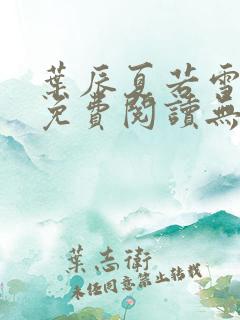 葉辰夏若雪
免費閱讀無
葉志衛
未經同意禁止轉載